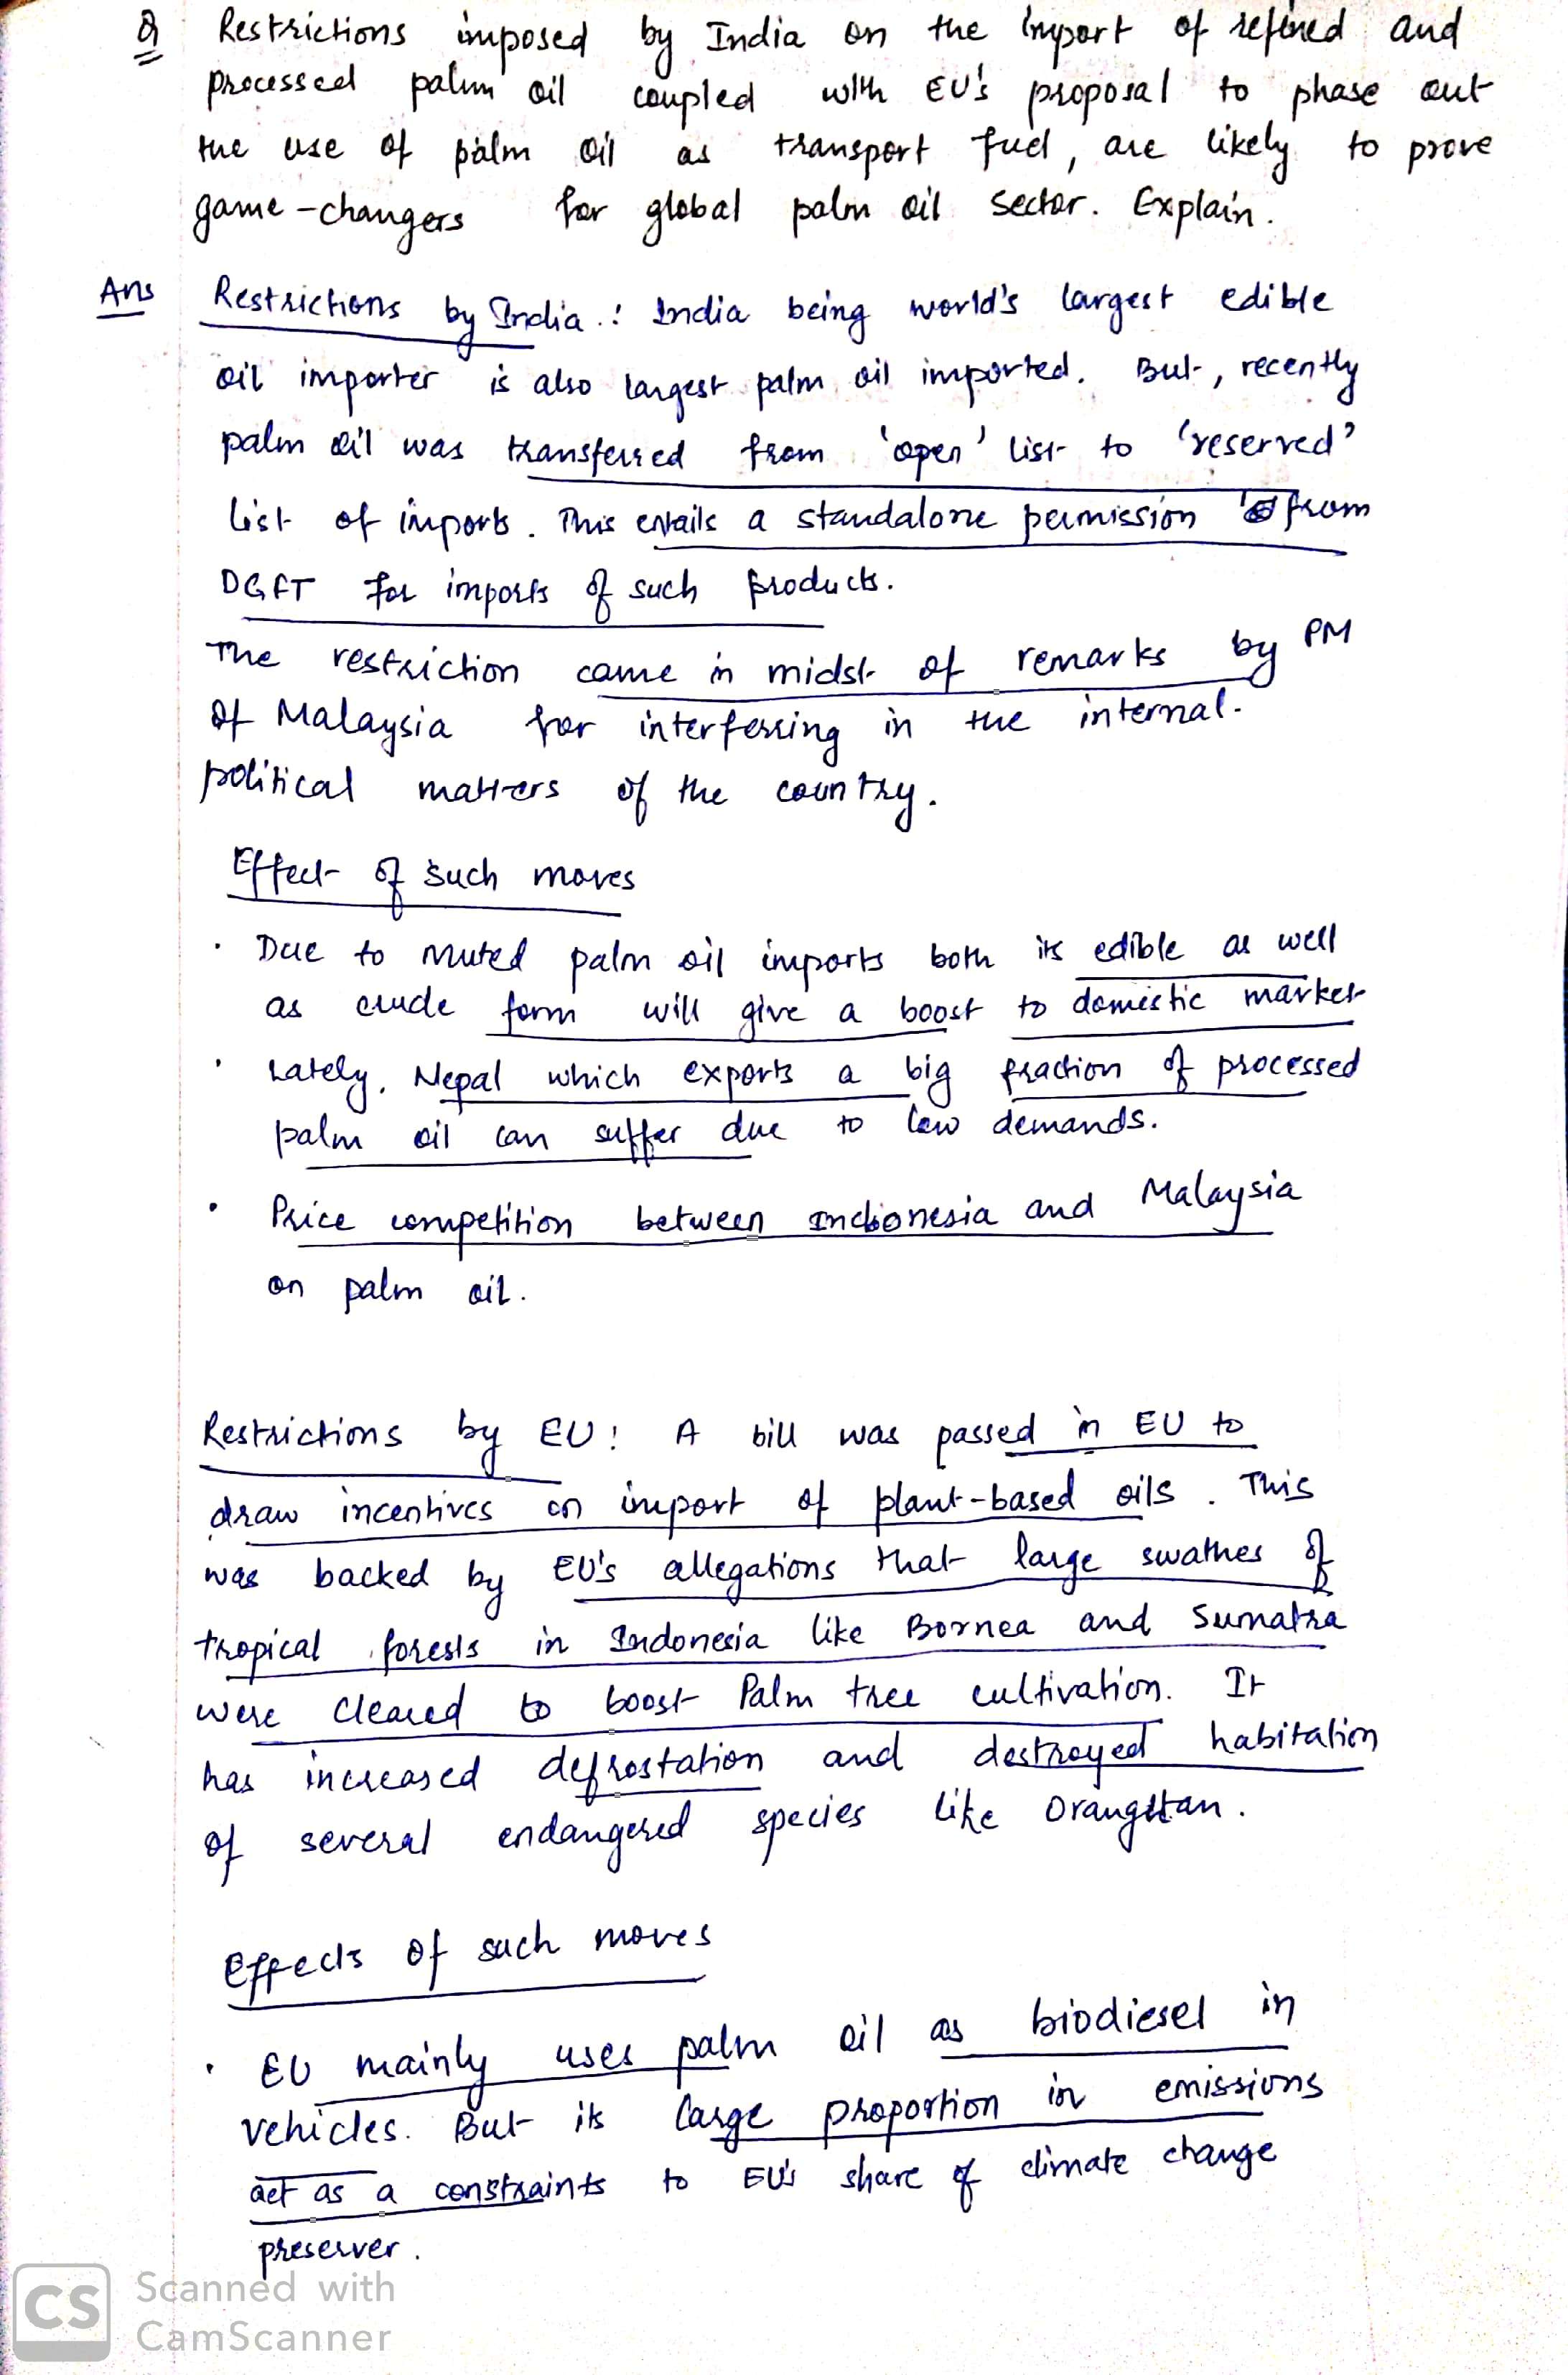 Q Restrictions imposed by India on the import of refined and
processed palm oil coupled with EU's proposal to phase out
the use of palm oil as transport fuel, are likely to prove
game-changers for global palm oil sector. Explain.
Ans Restrictions by India : India being world's largest edible
oil importer is also largest palm oil imported. But, recently
palm oil was transferred from 'open' list to 'reserved'
list of imports. This entails a standalone permission from
DGFT for imports of such products.
The restriction came in midst of remarks by PM
of Malaysia for interferring in the internal
political matters of the country.
Effect of such moves
· Due to muted palm oil imports both its edible as well
as crude form will give a boost to domestic market
· Lately, Nepal which exports a big fraction of processed
palm oil can suffer due to low demands.
· Price competition between Indionesia and Malaysia
on palm oil.
Restrictions by EU : A bill was passed in EU to
draw incentives on import of plant-based oils. This
was backed by EU's allegations that large swathes of
tropical forests in Indonesia like Bornea and Sumatra
were cleared to boost Palm tree cultivation. It
has increased defrostation and destroyed habitation
of several endangered species like
Effects of such moves
· EU mainly uses palm oil as biodiesel in
vehicles. But its large proportion in emissions
act as a constraints to EU's share of climate change
preserver.
CS Scanned with
CamScanner